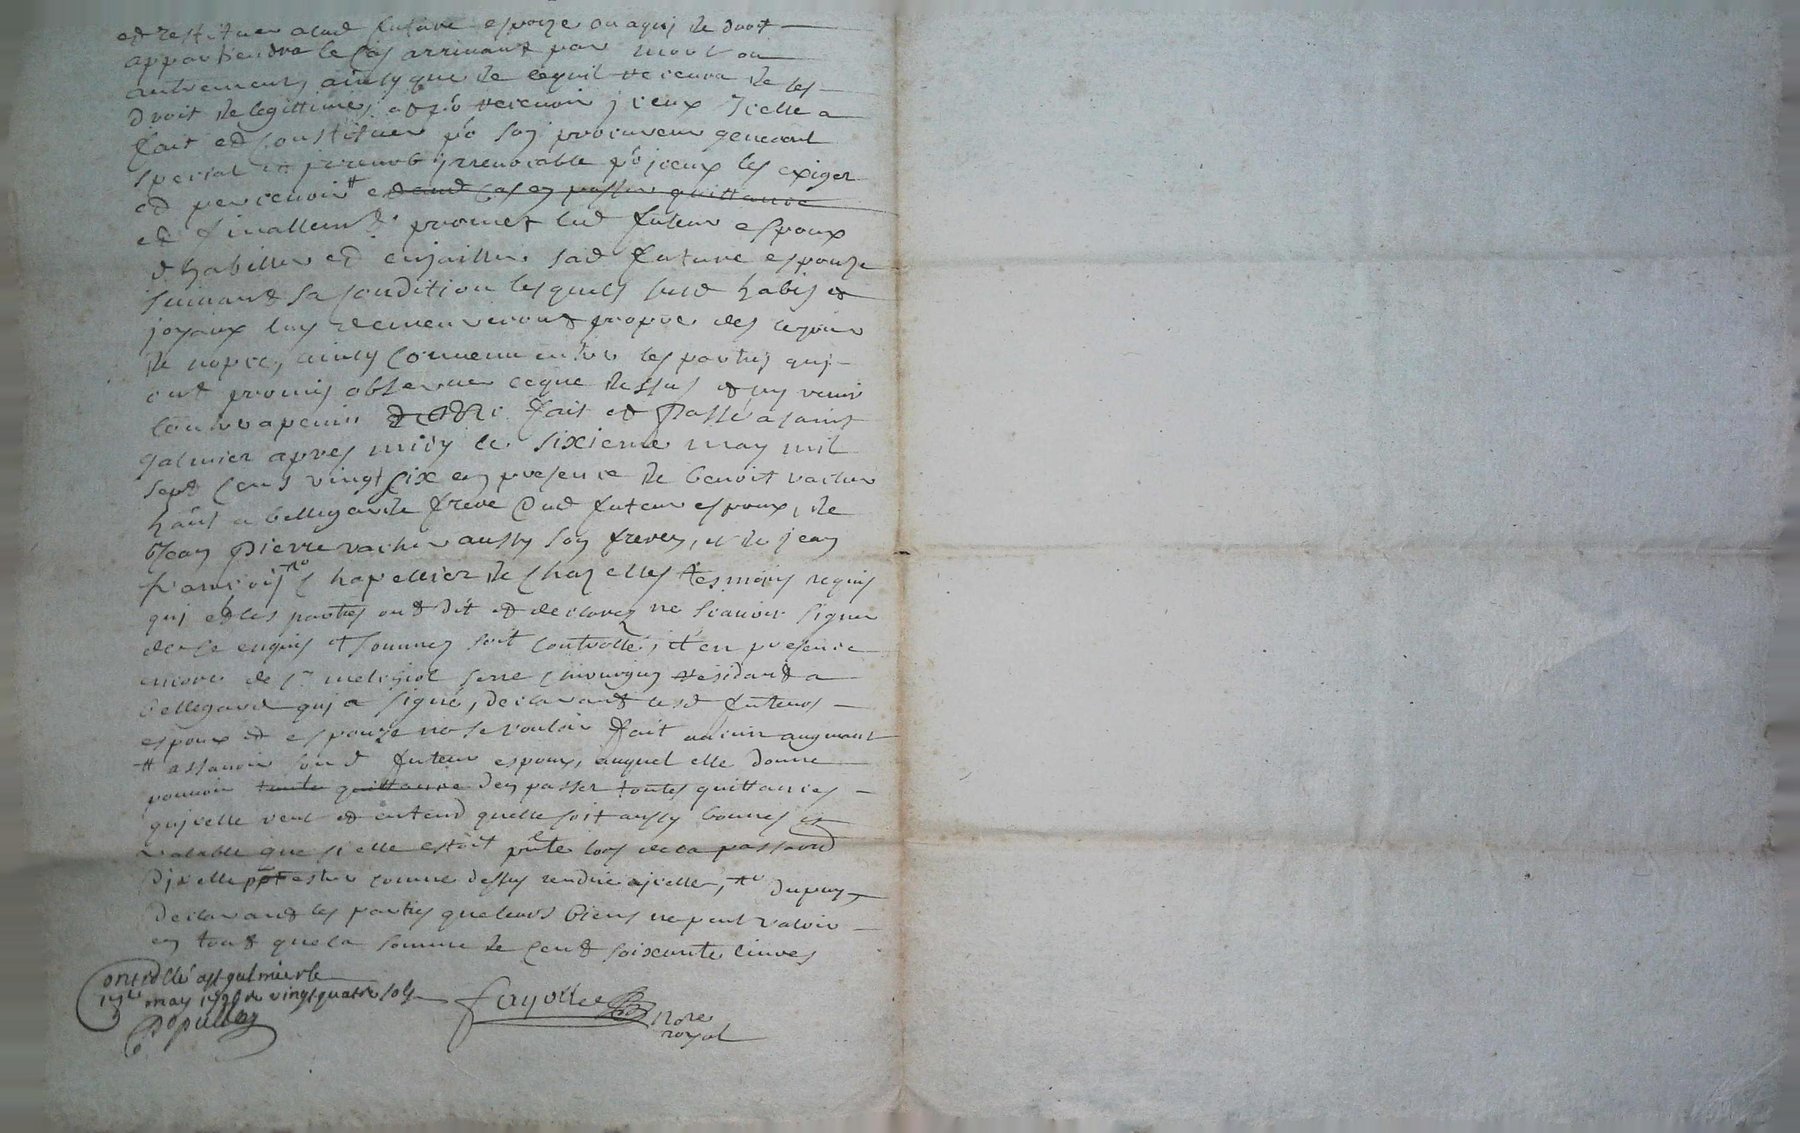 et restituer a lad future espouze ou a quj de droit
appartiendra le cas arrivant par mort ou
autrement, ainsy que de ce quil recevra de ses
droit de legittimes, et po recevoir jceux Icelle a
fait et constitué po son procureur general
special et jrrevocable po jceux les exiger
et percevoir # et aud cas en passer quittance
et finallemt promet led futeur espoux
dhabiller et enjailler sad future espouze
suivant sa condition lesquels susd habis et
joyaux luy demeureront propre des le jour
de nopce, ainsy convenu entre les parties quj
ont promis observer ce que dessus et ny venir
contre a peine Fait et Passé a saint
galmier apres midy le sixieme may mil
sept cens vingt six en presence de benoit vacher
hant a bellegarde frere dud futeur espoux, de
Jean Pierre vacher aussy son frere, et de jean
francois chapellier de Chazelles tesmoins requis
quj et les parties ont dit et declarez ne scavoir signer
de ce enquis et sommez soit controllé, et en presence
encore de sr serre chirurgien residant a
bellegarde quj a signé, declarant lesd futeurs
espoux et espouze ne se vouloir fait aucun augment
# assavoir sond futeur espoux, auquel elle donne
pouvoir toute quittance den passer toutes quittances
qujcelle veut et entend quelle soit aussy bonnes et
valable que si elle estoit pnte lors de la passaond
Djcelle comme dessus rendue ajcelle,
declarant les parties que leurs biens ne peut valoir
en tout que la somme de cent soixante livres
Controllé a St galmier le
may 1726 R vingt quatre sols
Fayolle Nore
royal